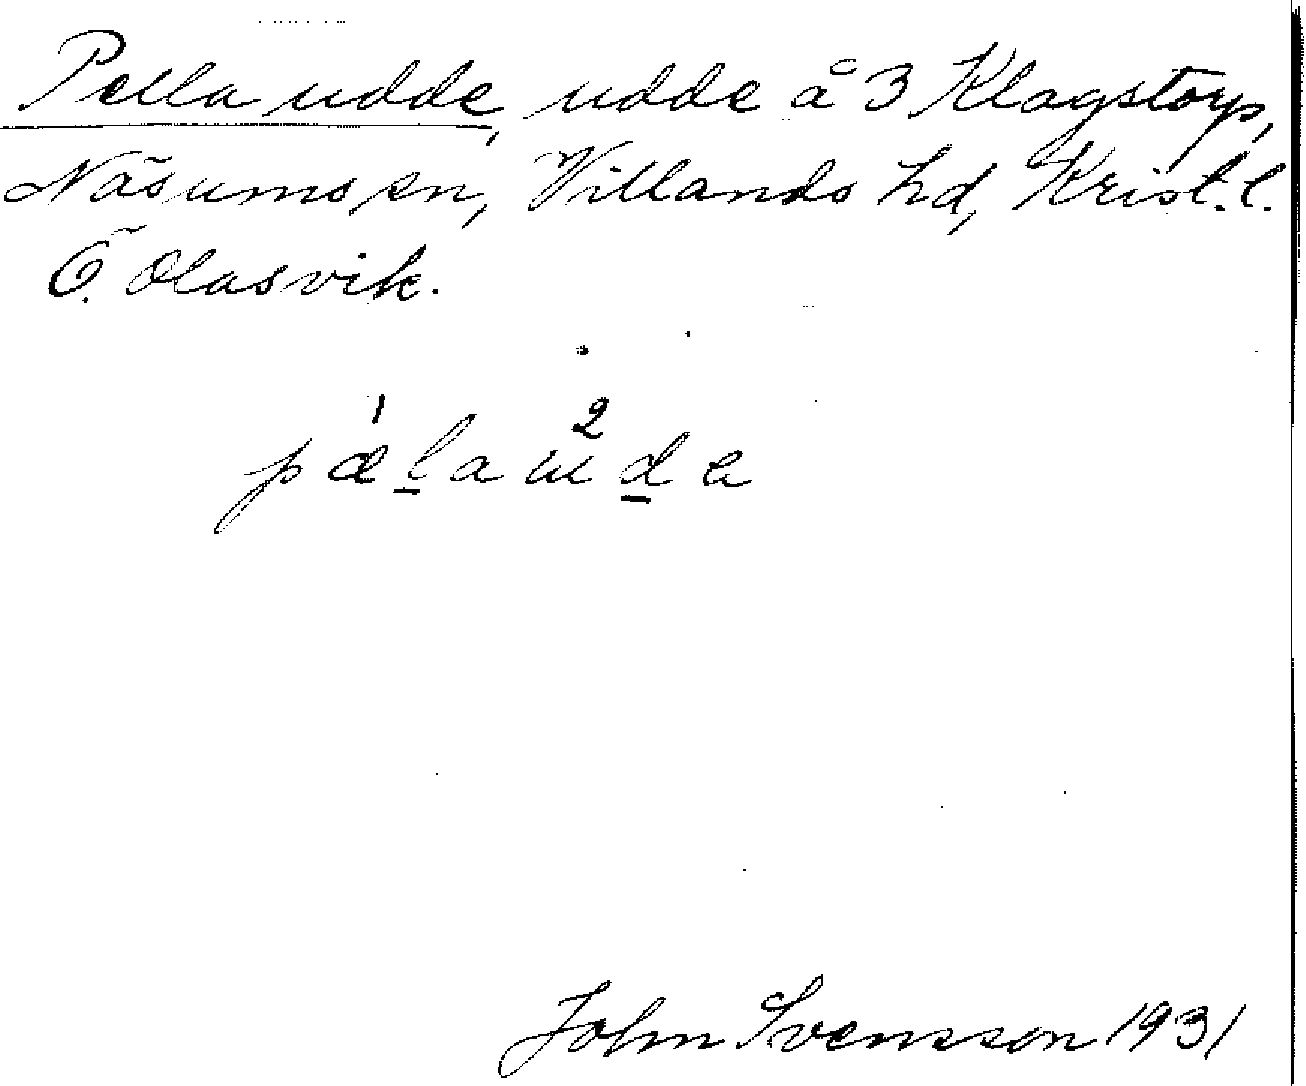 Pella udde, udde å 3 Klagstorp,
Näsums sn, Villands hd, Krist. l.
Ö. Olasvik.
pælaɯde
John Svensson 1931